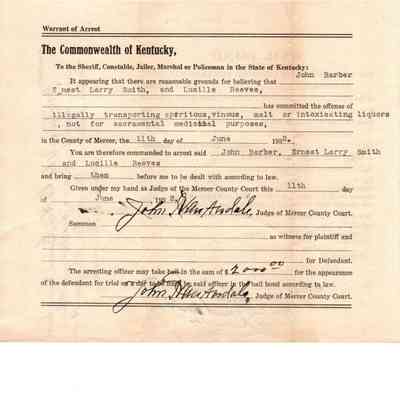 Warrant of Arrest
The Commonwealth of Kentucky,
To the Sheriff, Constable, Jailer, Marshal or Policeman in the State of Kentucky:
It appearing that there are reasonable grounds for believing that John Barber
Larry Smith, and Lucille Reeves,
has committed the offense of
illegally transporting spiritous, vinous, malt or intoxicating liquors
, not for sacramental medicinal purposes,
in the County of Mercer, the 11th day of June 192
You are therefore commanded to arrest said John Barber, Ernest Larry Smith
and Lucille Reeves
and bring them before me to be dealt with according to law.
Given under my hand as Judge of the Mercer County Court this 11th day
of June John Judge of Mercer County Court.
Summon
as witness for plaintiff and
for Defendant.
The arresting officer may take bail in the sum of $2000.00 for the appearance
of the defendant for trial on a day to be fixed by said officer in the bail bond according to law.
John Judge of Mercer County Court.